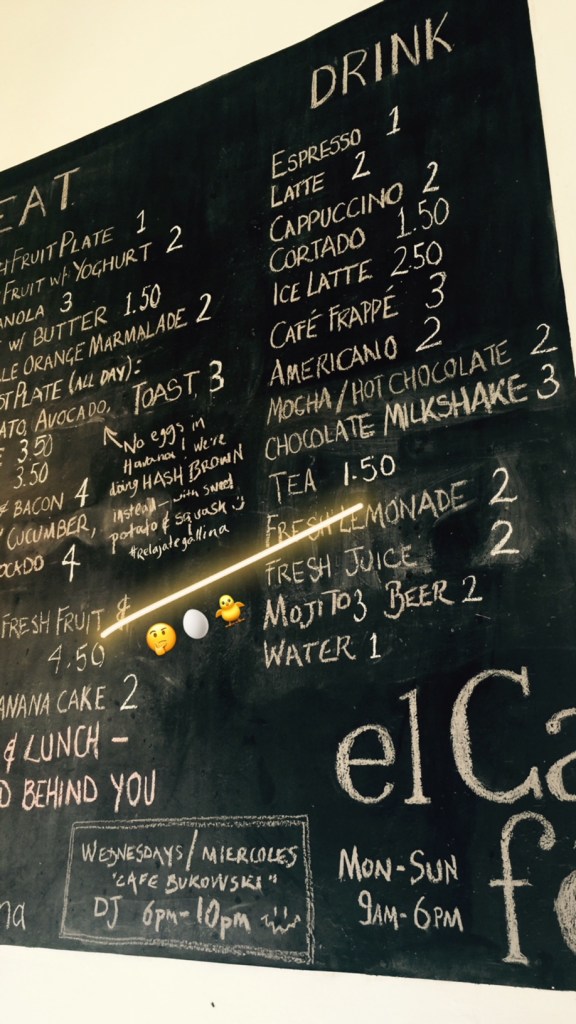 EAT
FRUIT PLATE 1
FRUIT W/ YOGHURT 2
3
W/ BUTTER 1.50
ORANGE MARMALADE 2
PLATE (ALL DAY):
AVOCADO, TOAST 3
3.50
3.50
& BACON 4
CUCUMBER,
4
No eggs in
Havana! We're
doing HASH BROWN
instead – with sweet
potato & squash
#Relajategallina
FRESH FRUIT &
4.50
CAKE 2
& LUNCH –
BEHIND YOU
DRINK
ESPRESSO 1
LATTE 2
CAPPUCCINO 2
CORTADO 1.50
ICE LATTE 2.50
CAFÉ FRAPPÉ 3
AMERICANO 2
MOCHA/HOT CHOCOLATE 2
CHOCOLATE MILKSHAKE 3
TEA 1.50
FRESH LEMONADE 2
FRESH JUICE 2
MOJITO 3 BEER 2
WATER 1
el Ca
fo
WEDNESDAYS/MIERCOLES
"CAFE BUKOWSKI"
DJ 6pm-10pm
MON-SUN
9AM-6PM